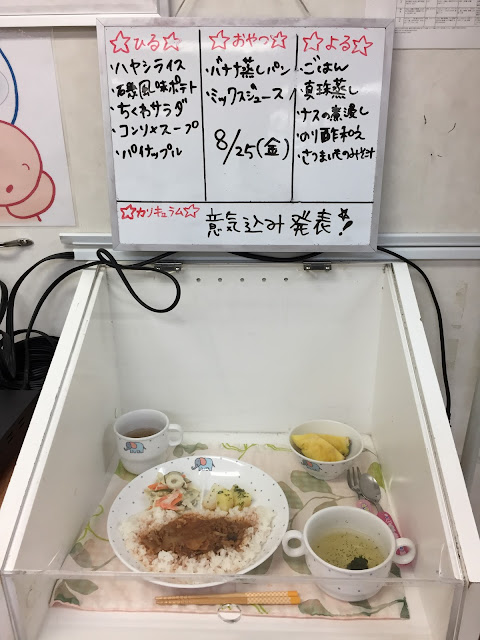 ☆ひる☆
・ハヤシライス
・磯風味ポテト
・ちくわサラダ
・コンソメスープ
・パイナップル
☆おやつ☆
・バナナ蒸しパン
・ミックスジュース
8/25(金)
☆よる☆
・ごはん
・真珠蒸し
・ナスの煮浸し
・のり酢和え
・さつまいものみそ汁
☆カリキュラム☆
意気込み発表!